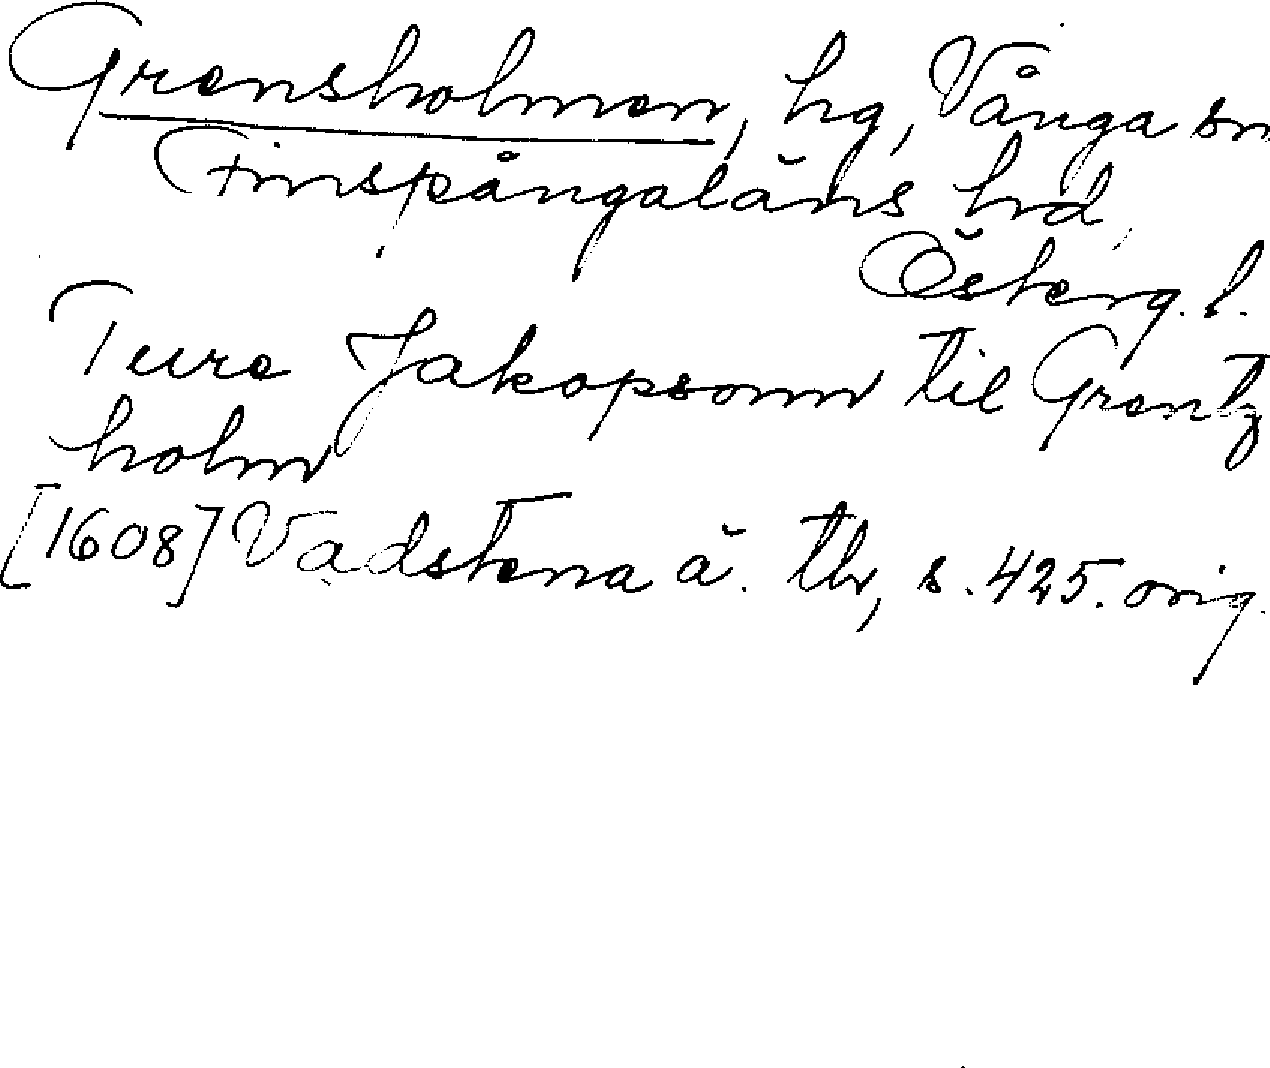 Grensholmen, hg, Vånga sn
Finspångaläns hrd,
Österg. l.
Ture Jakopsonn til Grentz
holm
[1608] Vadstena ä. tb, s. 425. orig.